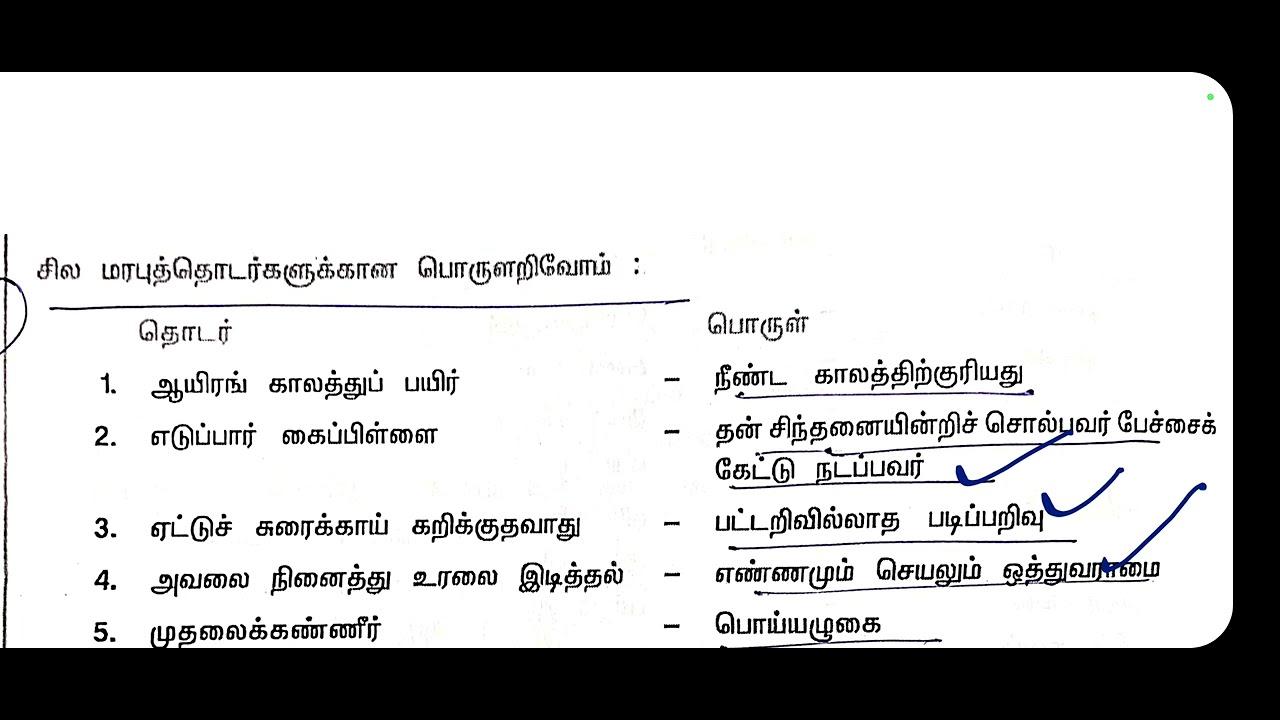 சில மரபுத்தொடர்களுக்கான பொருளறிவோம் :
தொடர் பொருள்
1. ஆயிரங் காலத்துப் பயிர் – நீண்ட காலத்திற்குரியது
2. எடுப்பார் கைப்பிள்ளை – தன் சிந்தனையின்றிச் சொல்பவர் பேச்சைக்
கேட்டு நடப்பவர்
3. ஏட்டுச் சுரைக்காய் கறிக்குதவாது – பட்டறிவில்லாத படிப்பறிவு
4. அவலை நினைத்து உரலை இடித்தல் – எண்ணமும் செயலும் ஒத்துவராமை
5. முதலைக்கண்ணீர் – பொய்யழுகை